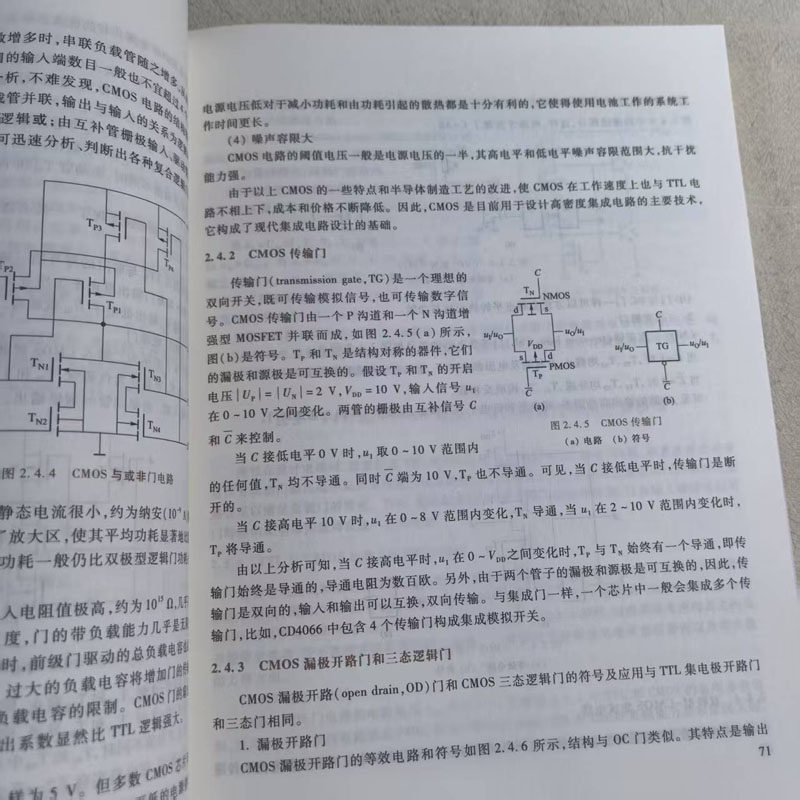 数增多时,串联负载管随之增多,
的输入端数目一般也不宜超过
析,不难发现,CMOS 电路的结构
管并联,输出与输入的关系为
逻辑或;由互补管栅极输入,
可迅速分析、判断出各种复合逻辑
T_P3
T_P4
T_P2
T_P1
T_N1
T_N3
T_N2
T_N4
图 2.4.4 CMOS 与或非门电路
静态电流很小,约为纳安(10
了放大区,使其平均功耗显著地
功耗一般仍比双极型逻辑门功耗
入电阻值极高,约为 10¹⁵ Ω,几乎
度,门的带负载能力几乎是无
时,前级门驱动的总负载电容
过大的负载电容将增加门的传
负载电容的限制。CMOS 门的
出系数显然比 TTL 逻辑强大。
样为 5 V。但多数 CMOS 芯片
电源电压低对于减小功耗和由功耗引起的散热都是十分有利的,它使得使用电池工作的系统工
作时间更长。
(4) 噪声容限大
CMOS 电路的阈值电压一般是电源电压的一半,其高电平和低电平噪声容限范围大,抗干扰
能力强。
由于以上 CMOS 的一些特点和半导体制造工艺的改进,使 CMOS 在工作速度上也与 TTL 电
路不相上下,成本和价格不断降低。因此,CMOS 是目前用于设计高密度集成电路的主要技术,
它构成了现代集成电路设计的基础。
2.4.2 CMOS 传输门
传输门(transmission gate,TG)是一个理想的
双向开关,既可传输模拟信号,也可传输数字信
号。CMOS 传输门由一个 P 沟道和一个 N 沟道增
强型 MOSFET 并联而成,如图 2.4.5(a)所示,
图(b)是符号。T_P 和 T_N 是结构对称的器件,它们
的漏极和源极是可互换的。假设 T_P 和 T_N 的开启
电压|U_P|=|U_N|=2 V,V_DD=10 V,输入信号 u_I
在 0~10 V 之间变化。两管的栅极由互补信号 C
和 C̅ 来控制。
C
T_N
NMOS
d
s
u_I/u_O
u_O/u_I
V_DD
s
d
PMOS
T_P
C̅
(a)
C
u_I/u_O
TG
u_O/u_I
C̅
(b)
图 2.4.5 CMOS 传输门
(a) 电路 (b) 符号
当 C 接低电平 0 V 时,u_I 取 0~10 V 范围内
的任何值,T_N 均不导通。同时 C̅ 端为 10 V,T_P 也不导通。可见,当 C 接低电平时,传输门是断
开的。
当 C 接高电平 10 V 时,u_I 在 0~8 V 范围内变化,T_N 导通,当 u_I 在 2~10 V 范围内变化时,
T_P 将导通。
由以上分析可知,当 C 接高电平时,u_I 在 0~V_DD 之间变化时,T_P 与 T_N 始终有一个导通,即传
输门始终是导通的,导通电阻为数百欧。另外,由于两个管子的漏极和源极是可互换的,因此,传
输门是双向的,输入和输出可以互换,双向传输。与集成门一样,一个芯片中一般会集成多个传
输门,比如,CD4066 中包含 4 个传输门构成集成模拟开关。
2.4.3 CMOS 漏极开路门和三态逻辑门
CMOS 漏极开路(open drain,OD)门和 CMOS 三态逻辑门的符号及应用与 TTL 集电极开路门
和三态门相同。
1. 漏极开路门
CMOS 漏极开路门的等效电路和符号如图 2.4.6 所示,结构与 OC 门类似。其特点是输出
71